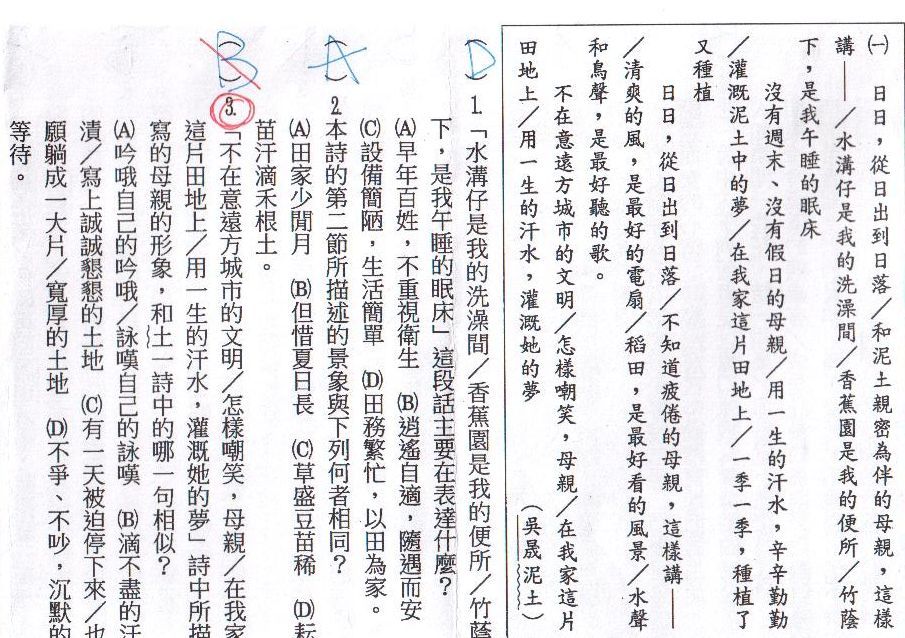 ㈠　日日，從日出到日落／和泥土親密為伴的母親，這樣
講——／水溝仔是我的洗澡間／香蕉園是我的便所／竹蔭
下，是我午睡的眠床
沒有週末、沒有假日的母親／用一生的汗水，辛辛勤勤
／灌溉泥土中的夢／在我家這片田地上／一季一季，種植了
又種植
日日，從日出到日落／不知道疲倦的母親，這樣講——
／清爽的風，是最好的電扇／稻田，是最好看的風景／水聲
和鳥聲，是最好聽的歌。
不在意遠方城市的文明／怎樣嘲笑，母親／在我家這片
田地上／用一生的汗水，灌溉她的夢　（吳晟泥土）
（D）1.「水溝仔是我的洗澡間／香蕉園是我的便所／竹蔭
下，是我午睡的眠床」這段話主要在表達什麼？
(A)早年百姓，不重視衛生　(B)逍遙自適，隨遇而安
(C)設備簡陋，生活簡單　(D)田務繁忙，以田為家。
（A）2.本詩的第二節所描述的景象與下列何者相同？
(A)田家少閒月　(B)但惜夏日長　(C)草盛豆苗稀　(D)耘
苗汗滴禾根土。
（B）3.「不在意遠方城市的文明／怎樣嘲笑，母親／在我家
這片田地上／用一生的汗水，灌溉她的夢」詩中所描
寫的母親的形象，和土一詩中的哪一句相似？
(A)吟哦自己的吟哦／詠嘆自己的詠嘆　(B)滴不盡的汗
漬／寫上誠誠懇懇的土地　(C)有一天被迫停下來／也
願躺成一大片／寬厚的土地　(D)不爭、不吵，沉默的
等待。